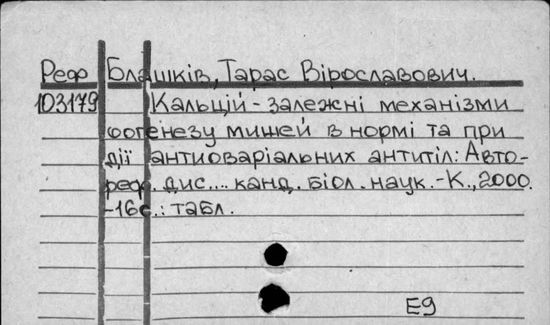 Реф Блашків, Тарас Вірославович.
103179 Кальцій-залежні механізми
оогенезу мишей в нормі та при
дії антиоваріальних антитіл: Авто-
реф. дис.... канд. біол. наук.-К., 2000.
-16с.: табл.
Е9